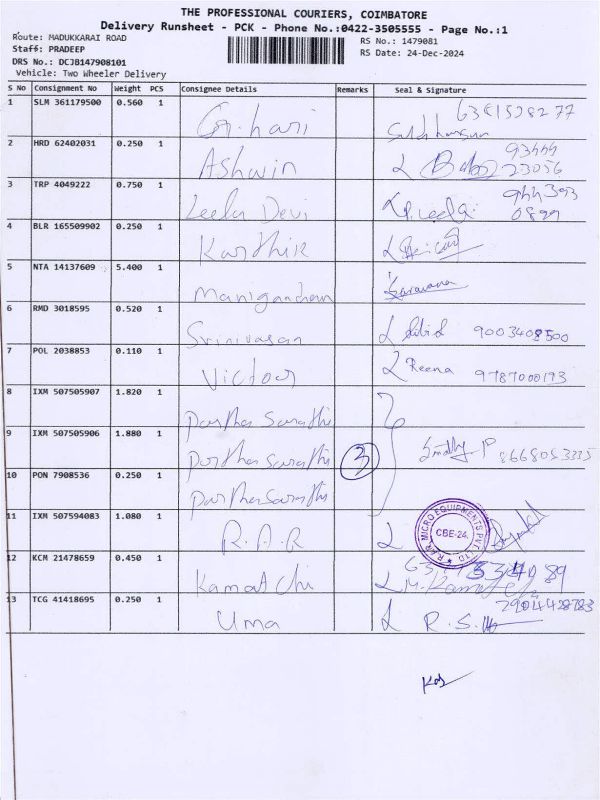 THE PROFESSIONAL COURIERS, COIMBATORE
Delivery Runsheet - PCK - Phone No.:0422-3505555 - Page No.:1
Route: MADUKKARAI ROAD
RS No.: 1479081
Staff: PRADEEP
RS Date: 24-Dec-2024
DRS No.: DCJB147908101
Vehicle: Two Wheeler Delivery
S No Consignment No Weight PCS Consignee Details Remarks Seal & Signature
1 SLM 361179500 0.560 1 G. hari
2 HRD 62402031 0.250 1 Ashwin Babo 93444 23056
3 TRP 4049222 0.750 1 Leela Devi P. Leela 944393 0899
4 BLR 165509902 0.250 1 Karthik
5 NTA 14137609 5.400 1 Saravana
6 RMD 3018595 0.520 1 Srinivasan 9003408500
7 POL 2038853 0.110 1 Victor Reena 9787000193
8 IXM 507505907 1.820 1 Partha Sarathi
9 IXM 507505906 1.880 1 Partha Sarathi 3
10 PON 7908536 0.250 1 Partha Sarathi
11 IXM 507594083 1.080 1 R.A.R R.A.R. MICRO EQUIPMENTS PVT. LTD. CBE-24.
12 KCM 21478659 0.450 1 Kamatchi
13 TCG 41418695 0.250 1 Uma